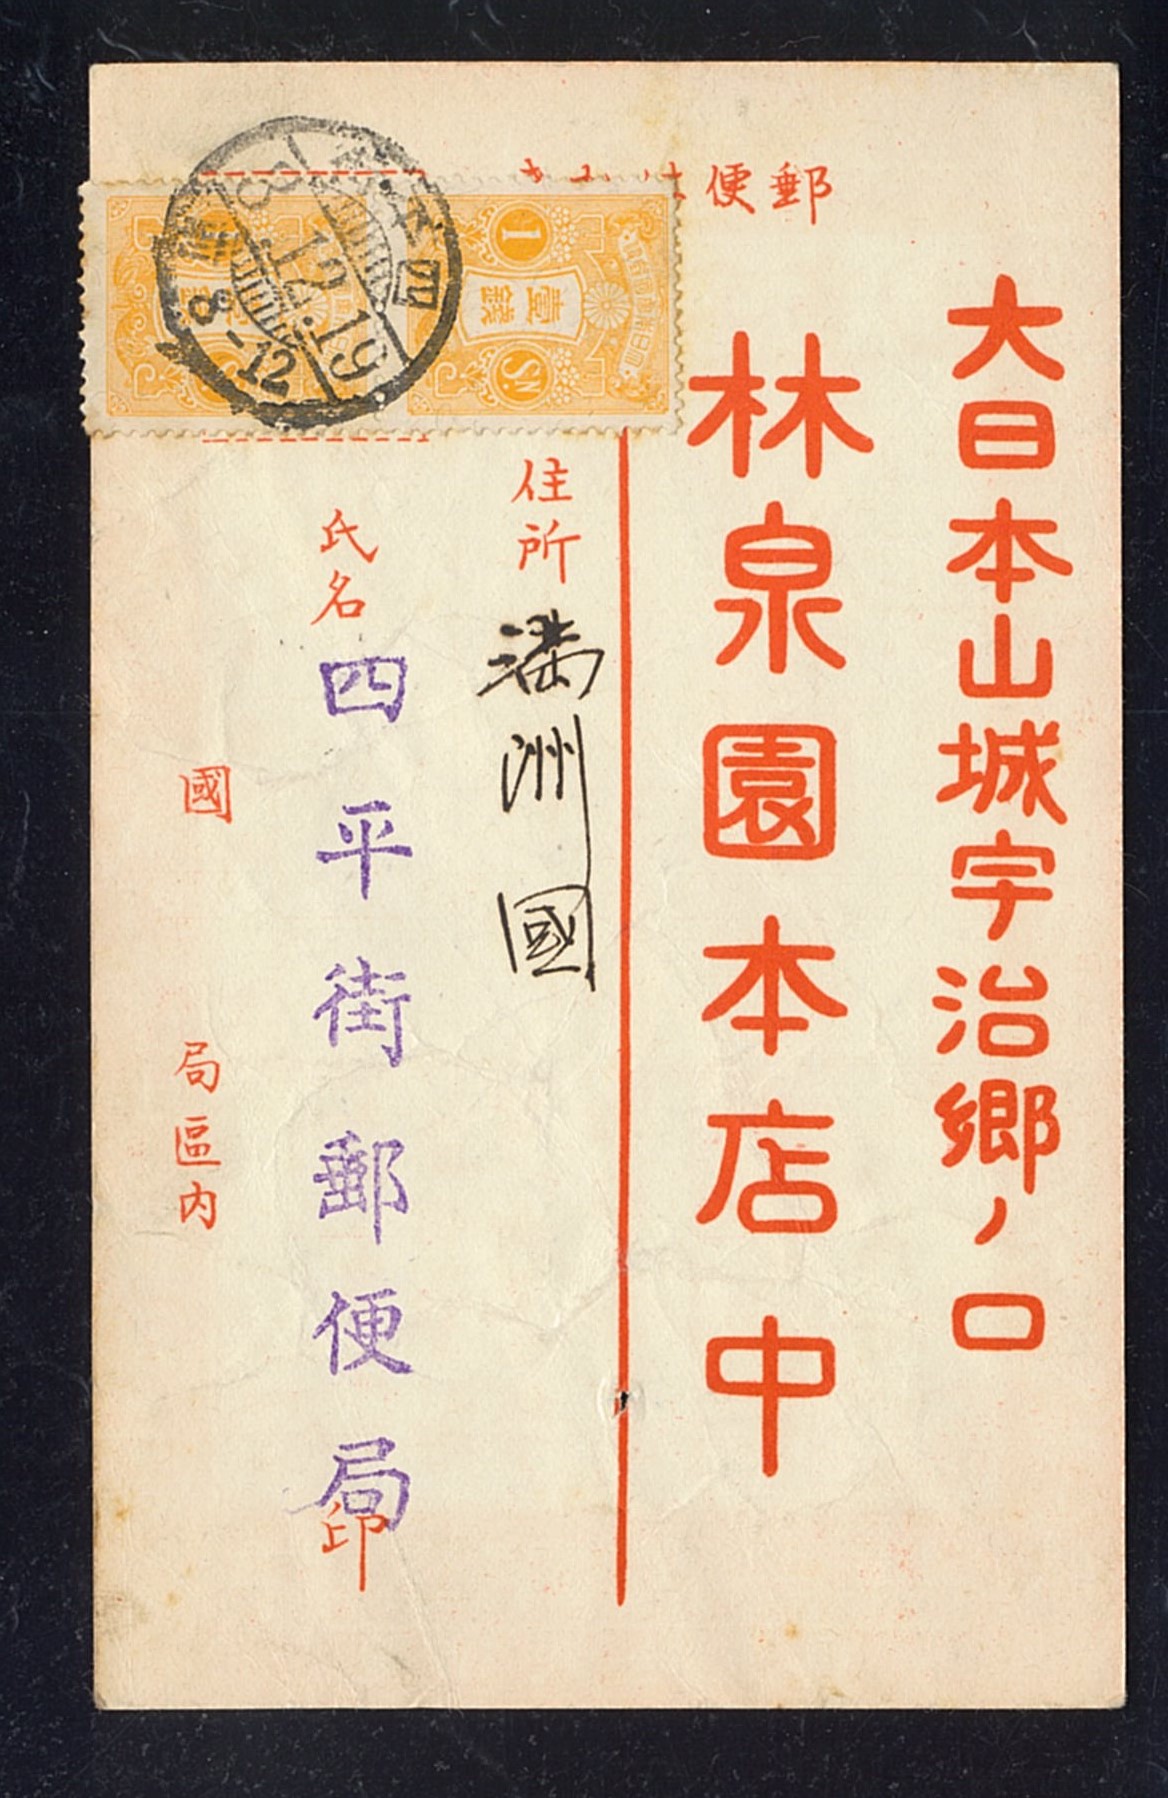 郵便はか
大日本山城宇治郷ノ口
林泉園本店中
住所
満洲國
氏名
四平街郵便局
印
國
局區内
四平街
8.12.19
8-12
1
壹錢
Sn.
大日本帝國郵便